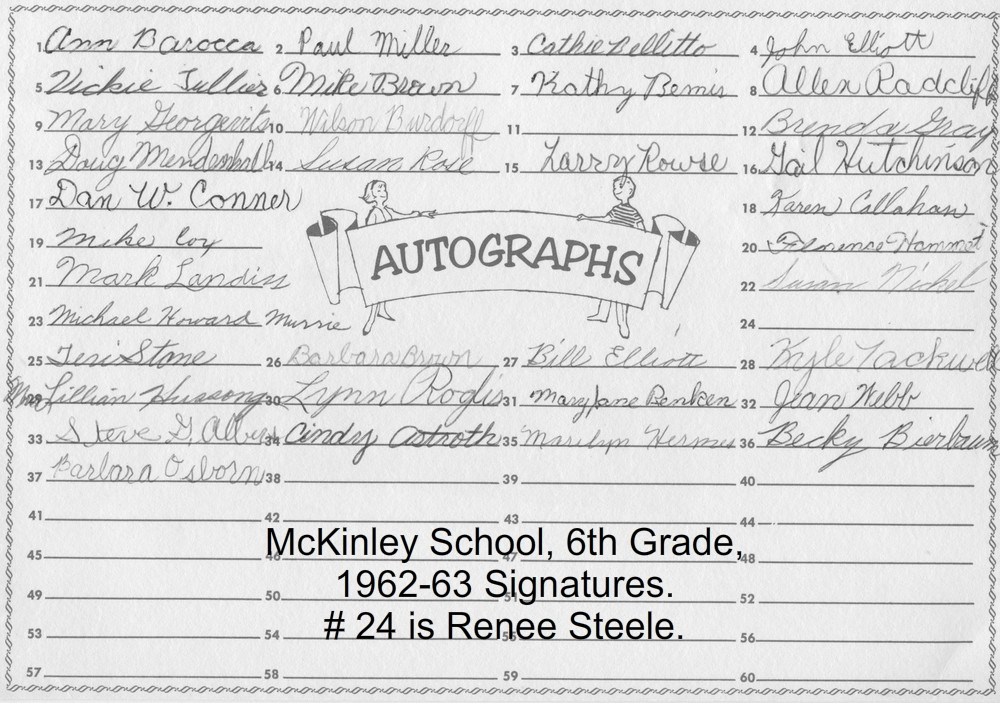 1. Ann Barocca 2 Paul Miller 3 Cathie Bellitto 4 John Elliott
5 Vickie Tullier 6 Mike Brown 7 Kathy Bemis 8 Allen Radcliff
9 Mary 10 Wilson Burdorff 11 12 Brenda Gray
13 Doug Mendenhall 14 Susan Rose 15 Larry Rowse 16 Gail Hutchinson
17 Dan W. Conner 18 Karen Callahan
19 Mike Coy 20 Florence Hammet
21 Mark Landiss 22 Susan Nickel
AUTOGRAPHS
23 Michael Howard Murrie 24
25 Teri Stone 26 Barbara Brown 27 Bill Elliott 28 Kyle Tackwell
29 Mrs. Lillian Hussong 30 Lynn Roglis 31 Mary Jane Benken 32 Jean Webb
33 Steve G. Albers 34 Cindy Ostroth 35 Marilyn Hermes 36 Becky Bierbaum
37 Barbara Osborn 38 39 40
41 42 43 44
McKinley School, 6th Grade,
45 46 47 48
1962-63 Signatures.
49 50 51 52
# 24 is Renee Steele.
53 54 55 56
57 58 59 60